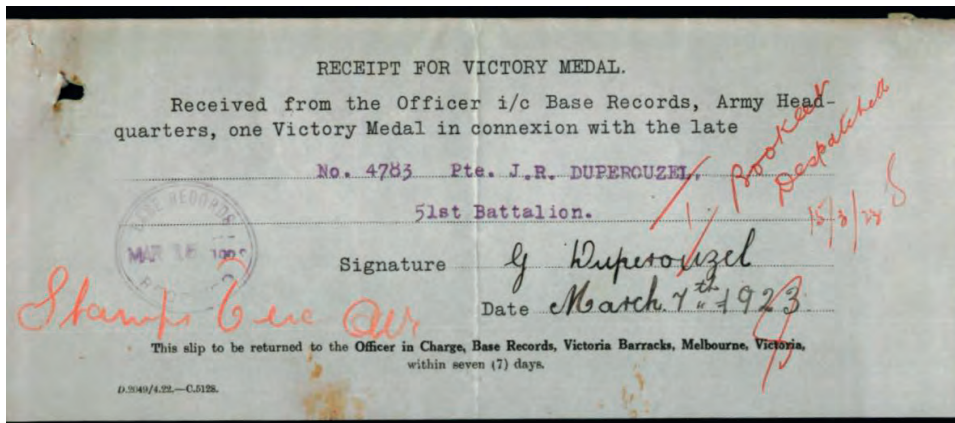 RECEIPT FOR VICTORY MEDAL.
Received from the Officer i/c Base Records, Army Head-
quarters, one Victory Medal in connexion with the late
No. 4783 Pte. J.R. DUPEROUZEL.
51st Battalion.
Booked
Despatched
15/3/23
BASE RECORDS
MAR 15
Signature G Duperouzel
Date March. 7th 1923
Stamps
This slip to be returned to the Officer in Charge, Base Records, Victoria Barracks, Melbourne, Victoria,
within seven (7) days.
D.2049/4.22.—C.5128.